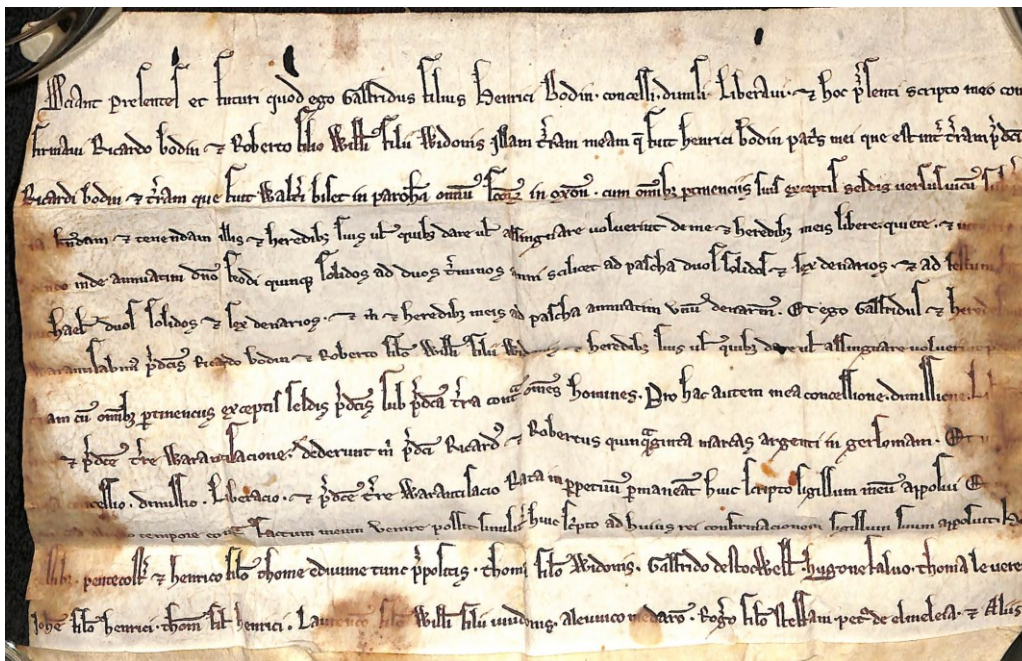 Sciant presentes et futuri quod ego Galfridus filius Henrici Bodin. concessi. dimisi. Liberavi. ⁊ hoc p̃senti scripto meo con
firmavi Ricardo bodin ⁊ Roberto filio Willi filii Widonis Illam t̃ram meam q̃ fuit henrici bodin patris mei que est int̃ t̃ram p̃dc̃i
Ricardi bodin ⁊ t̃ram que fuit Walt̃i biset in paroh̃ia om̃iũ sc̃oꝝ in oxoñ. cum om̃ibꝫ ptinenciis suis exceptis seldis versus vicũ
h̃ndam ⁊ tenendam illis ⁊ heredibꝫ suis ul̃ quibꝫ dare ul̃ assingnare voluerint de me ⁊ heredibꝫ meis libere. quiete. ⁊
inde annuatim dño feodi quinqꝫ solidos ad duos t̃minos anni scilicet ad pascha duos solidos ⁊ sex denarios. ⁊ ad festum
chael̃ duos solidos ⁊ sex denarios. ⁊ m̃ ⁊ heredibꝫ meis ad pascha annuatim unũ denariũ. Et ego Galfridus ⁊ hered
Warantisabim̃ p̃dc̃is Ricardo bodin ⁊ Roberto filio Willi filii ⁊ heredibꝫ suis ul̃ quibꝫ dare ul̃ assingnare
am cũ om̃ibꝫ ptinenciis exceptis seldis p̃dc̃is sub p̃dc̃a t̃ra cont̃ om̃es homines. Pro hac autem mea concessione. dimissione.
⁊ p̃dc̃e t̃re Warantisacione. dederunt m̃ p̃dc̃i Ricard᷒ ⁊ Robertus quinq̃ginta marcas argenti in gersomam. Et
concessio. dimissio. Liberacio. ⁊ p̃dc̃e t̃re Warantisacio Rata in ppetuũ pmaneat huic scripto sigillum meũ apposui
tempore cont̃ factum meum venire possit simulit̃ huic sc̃pto ad huius rei confirmacionem sigillum suum apposuit
pentecost̃ ⁊ henrico filio thome edwine tunc p̃positis. thom̃ filio Widonis. Galfrido de stocwelle. hugone saluo. thoma le vere
Johe filio henrici. thom̃ fil̃ henrici. Laurencio filio Willi filii widonis. Rog̃o filio petro de elmelega. ⁊ Aliis